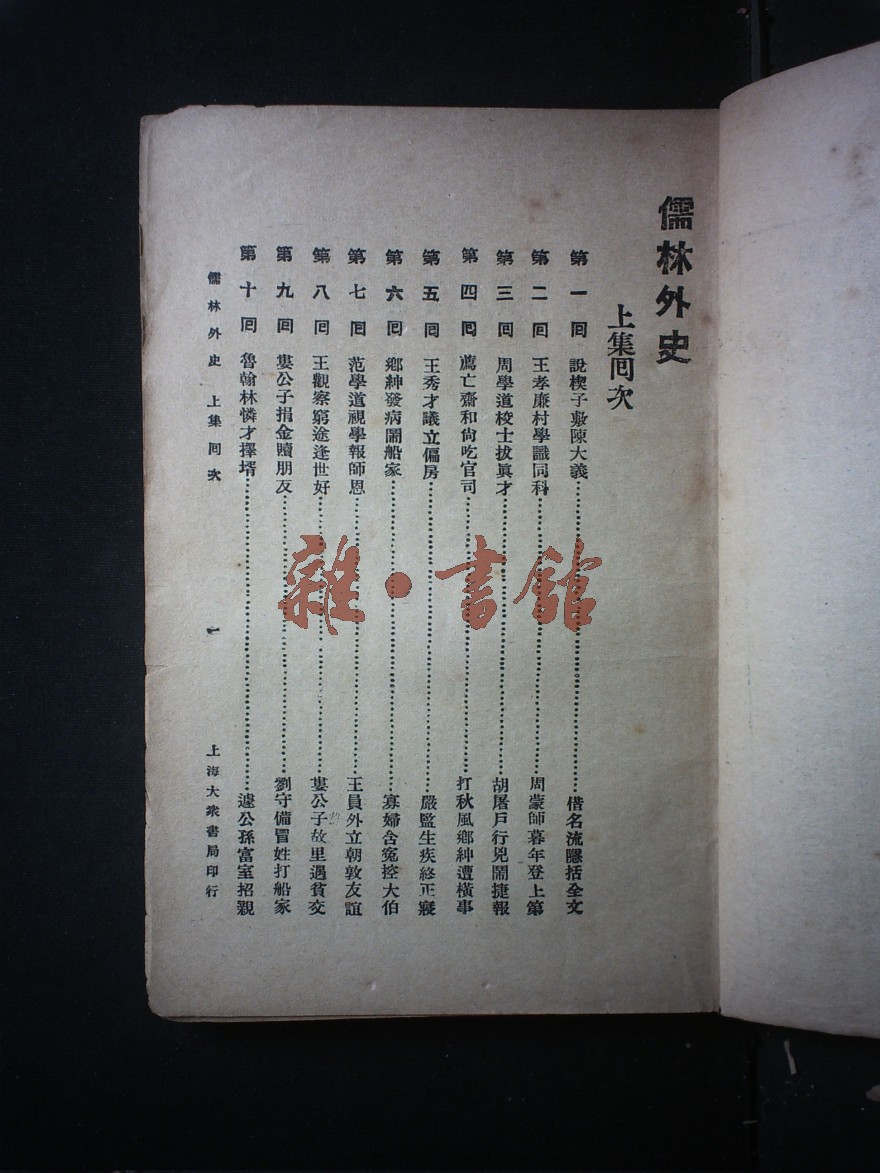 儒林外史
上集囘次
第一囘 說楔子敷陳大義……借名流隱括全文
第二囘 王孝廉村學識同科……周蒙師暮年登上第
第三囘 周學道校士拔眞才……胡屠戶行兇鬧捷報
第四囘 薦亡齋和尙吃官司……打秋風鄉紳遭橫事
第五囘 王秀才議立偏房……嚴監生疾終正寢
第六囘 鄉紳發病鬧船家……寡婦含寃控大伯
第七囘 范學道視學報師恩……王員外立朝敦友誼
第八囘 王觀察窮途逢世好……婁公子故里遇貧交
第九囘 婁公子捐金贖朋友……劉守備冒姓打船家
第十囘 魯翰林憐才擇壻……遽公孫富室招親
儒林外史 上集囘次 一 上海大衆書局印行
雜·書館